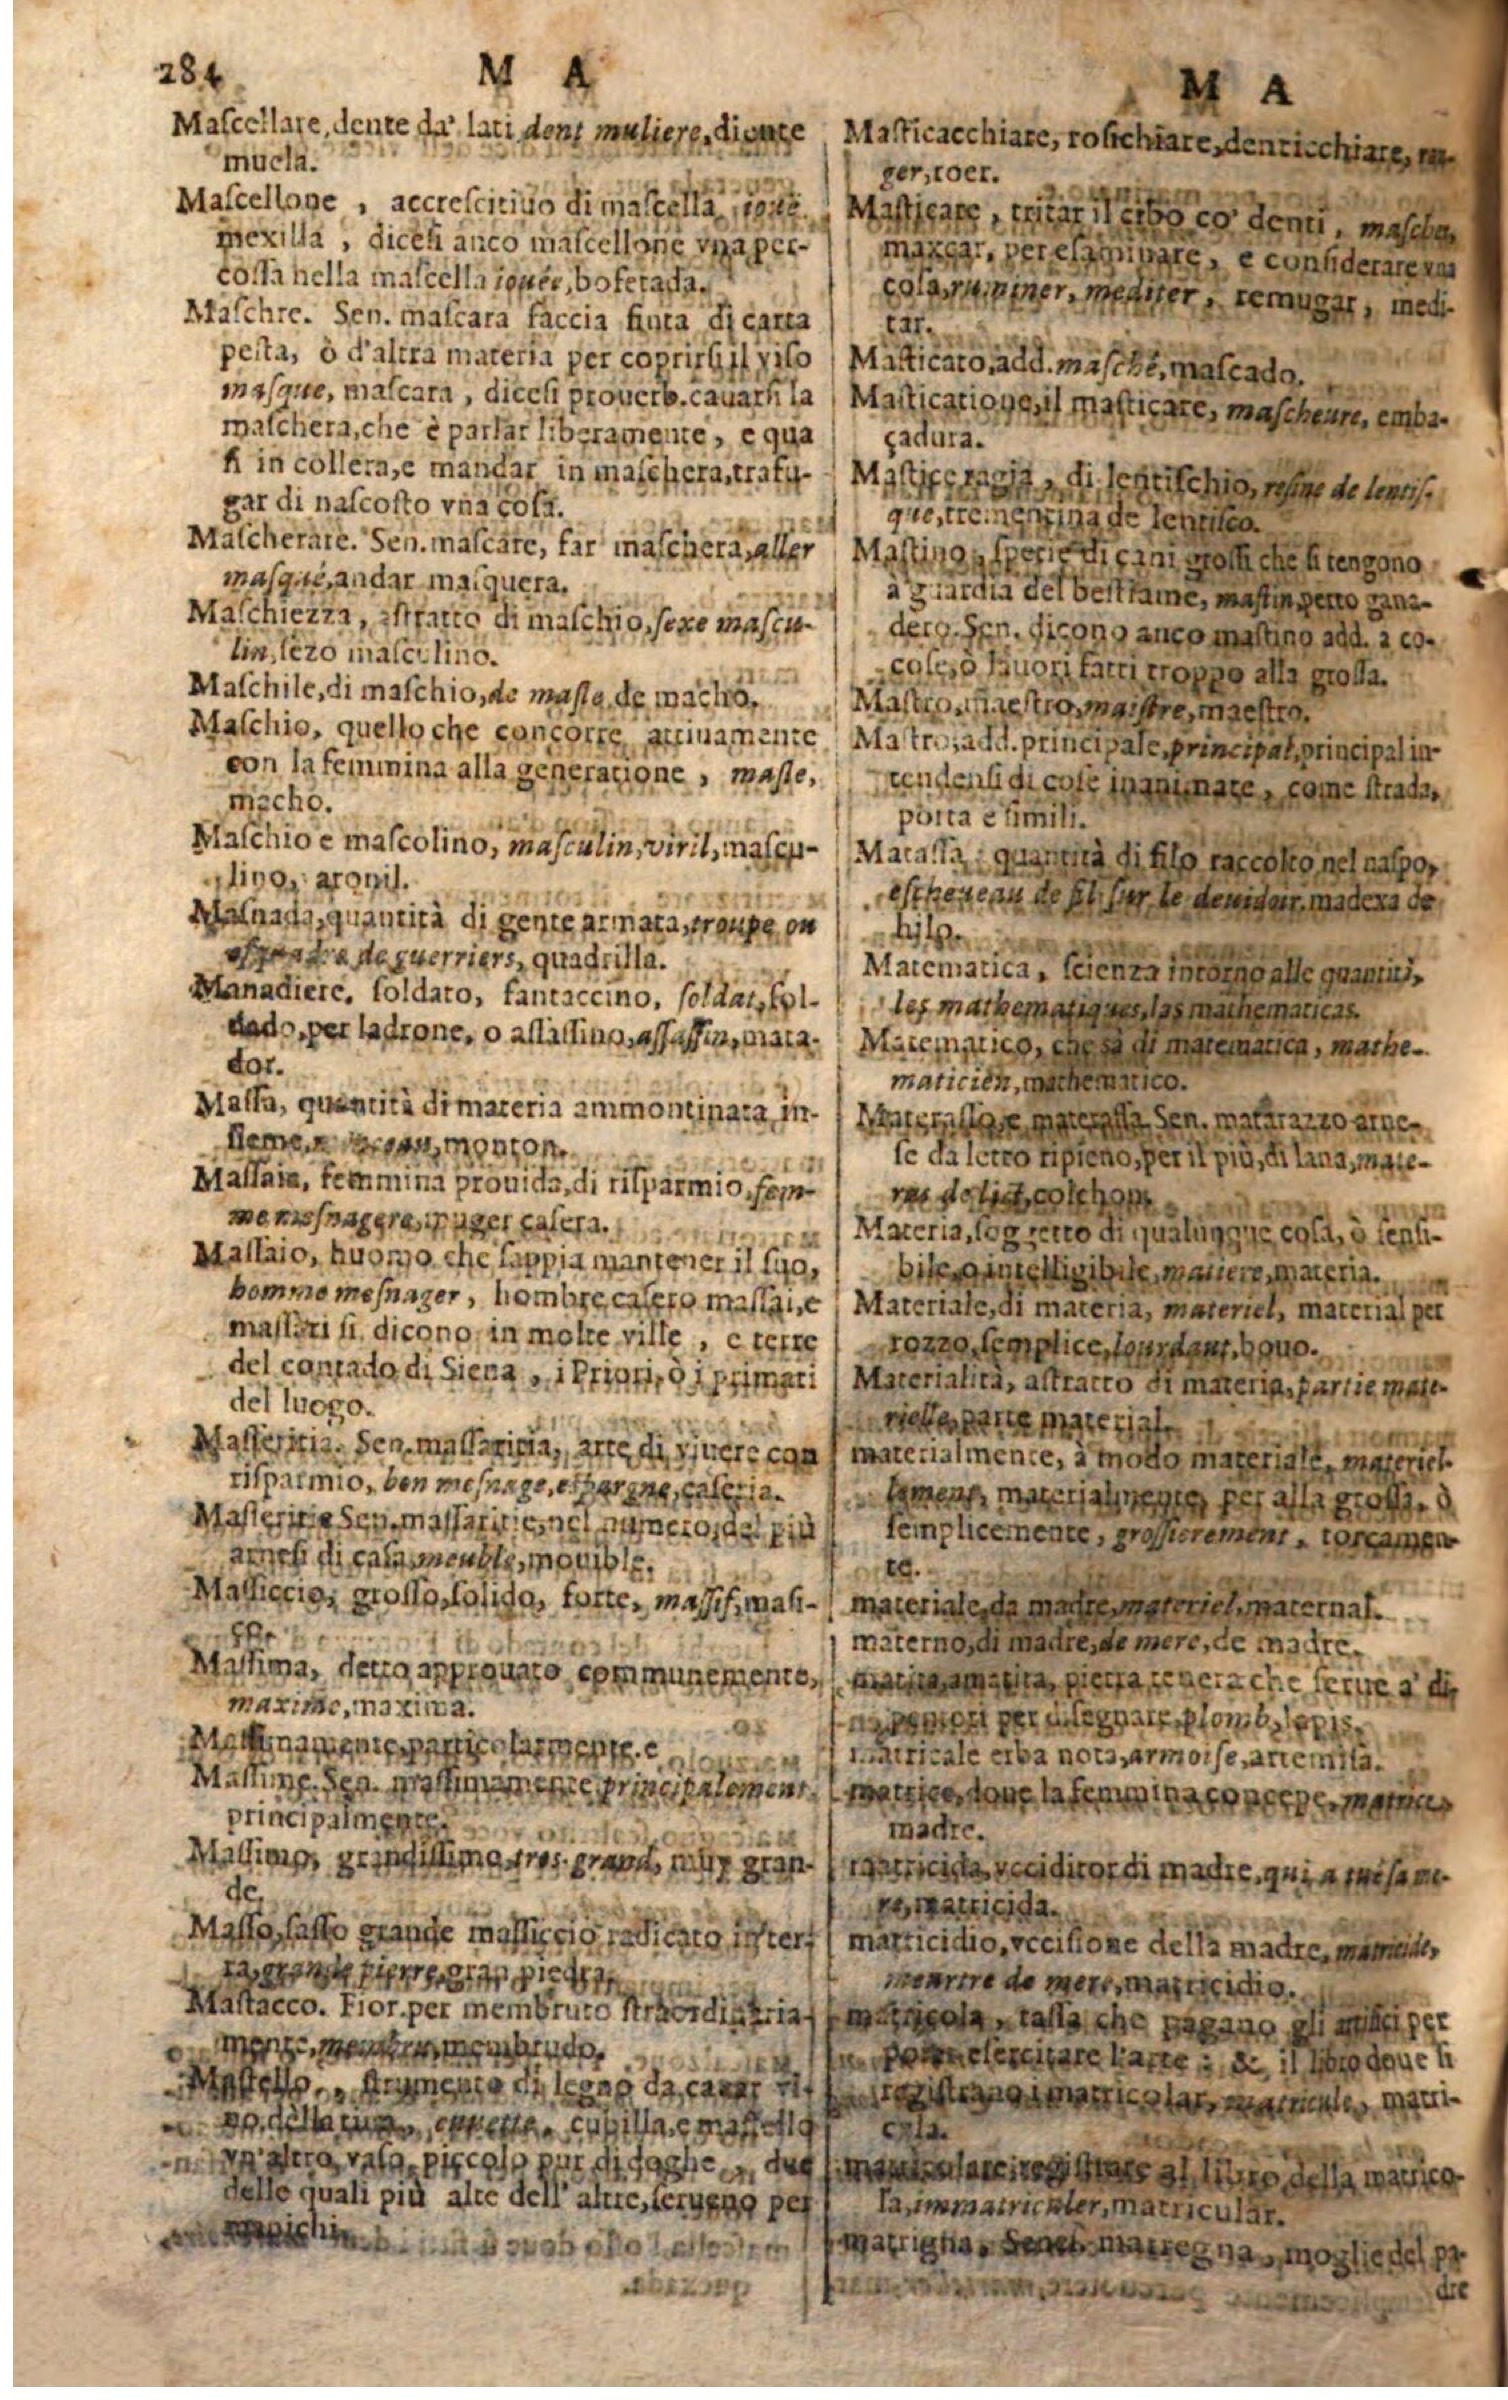 284 M A
Maſcellare, dente da' lati dent muliere, diente
muela.
Maſcellone , accreſcitiuo di maſcella, iouë
mexilla , diceſi anco maſcellone vna per-
coſſa nella maſcella iouée, bofetada.
Maſchre. Sen. maſcara faccia finta di carta
peſta, ò d'altra materia per coprirſi il viſo
maſque, maſcara , diceſi prouerb. cauarſi la
maſchera, che è parlar liberamente , e qua
ſi in collera, e mandar in maſchera, trafu-
gar di naſcoſto vna coſa.
Maſcherare. Sen. maſcare, far maſchera, aller
maſqué, andar maſquera.
Maſchiezza , aſtratto di maſchio, ſexe maſcu-
lin, ſezo maſculino.
Maſchile, di maſchio, de maſle de macho.
Maſchio, quello che concorre attiuamente
con la femmina alla generatione , maſle,
macho.
Maſchio e maſcolino, maſculin, viril, maſcu-
lino, aronil.
Maſnada, quantità di gente armata, troupe ou
de guerriers, quadrilla.
Manadiere. ſoldato, fantaccino, ſoldat, ſol-
dado, per ladrone, o aſſaſſino, aſſaſſin, mata-
dor.
Maſſa, quantità di materia ammontinata in-
ſieme, monton.
Maſſaia, femmina prouida, di riſparmio, fem-
me meſnagere, muger caſera.
Maſſaio, huomo che ſappia mantener il ſuo,
homme meſnager , hombre caſero maſſai, e
maſſari ſi dicono in molte ville , e terre
del contado di Siena , i Priori, ò i primati
del luogo.
Maſſeritia. Sen. maſſaritia, arte di viuere con
riſparmio, bon meſnage, eſpargne, caſeria.
Maſſeritie Sen. maſſaritie, nel numero del più
arneſi di caſa, meuble, mouible.
Maſſiccio, groſſo, ſolido, forte, maſſif, maſi-
ço.
Maſſima, detto approuato communemente,
maxime, maxima.
Maſſimamente, particolarmente. e
Maſſime. Sen. maſſimamente principalement
principalmente.
Maſſimo, grandiſſimo, tres-grand, muy gran-
de.
Maſſo, ſaſſo grande maſſiccio radicato in ter-
ra, grande pierre, gran piedra.
Maſtacco. Fior. per membruto ſtraordinaria-
mente, membru, membrudo.
Maſtello , ſtrumento di legno da cauar vi-
no della tina, cuuette, cubilla, e maſtello
vn'altro vaſo piccolo pur di doghe , due
delle quali più alte dell' altre, ſeruono per
manichi.
M A
Maſticacchiare, roſichiare, denticchiare, ru-
ger, roer.
Maſticare , tritar il cibo co' denti , maſcher,
maxcar, per eſaminare, e conſiderare vna
coſa, ruminer, mediter , remugar , medi-
tar.
Maſticato, add. maſché, maſcado.
Maſticatione, il maſticare, maſcheure, emba-
çadura.
Maſtice ragia , di lentiſchio, reſine de lentiſ-
que, trementina de lentiſco.
Maſtino , ſpetie di cani groſſi che ſi tengono
à guardia del beſtiame, maſtin, perro gana-
dero. Sen. dicono anco maſtino add. a co-
coſe, ò lauori fatti troppo alla groſſa.
Maſtro, maeſtro, maiſtre, maeſtro.
Maſtro, add. principale, principal, principal in-
tendenſi di coſe inanimate , come ſtrada,
porta e ſimili.
Mataſſa , quantità di filo raccolto nel naſpo,
eſcheueau de fil ſur le deuidoir, madexa de
hilo.
Matematica , ſcienza intorno alle quantità,
les mathematiques, las mathematicas.
Matematico, che sà di matematica , mathe-
maticien, mathematico.
Materaſſo, e materaſſa Sen. matarazzo arne-
ſe da letto ripieno, per il più, di lana, mate-
ras de lict, colchon.
Materia, ſoggetto di qualunque coſa, ò ſenſi-
bile, o intelligibile, matiere, materia.
Materiale, di materia, materiel, material per
rozzo, ſemplice, lourdaut, bouo.
Materialità, aſtratto di materia, partie mate-
rielle, parte material.
materialmente, à modo materiale, materiel-
lement, materialmente, per alla groſſa, ò
ſemplicemente , groſſierement , torçamen-
te.
materiale, da madre, materiel, maternal.
materno, di madre, de mere, de madre.
matita, amatita, pietra tenera che ſerue a' di-
pentori per diſegnare, plomb, lapis.
matricale erba nota, armoiſe, artemiſa.
matrice, doue la femmina concepe, matrice,
madre.
matricida, vcciditor di madre, qui a tué ſa me-
re, matricida.
matricidio, vcciſione della madre, matricide,
meurtre de mere, matricidio.
matricola , taſſa che pagano gli artiſici per
poter eſercitare l'arte : & il libro doue ſi
regiſtrano i matricolar, matricule , matri-
cola.
matricolare, regiſtrare al libro della matrico-
la, immatriculer, matricular.
matrigna, Seneſ. matregna , moglie del pa-
dre